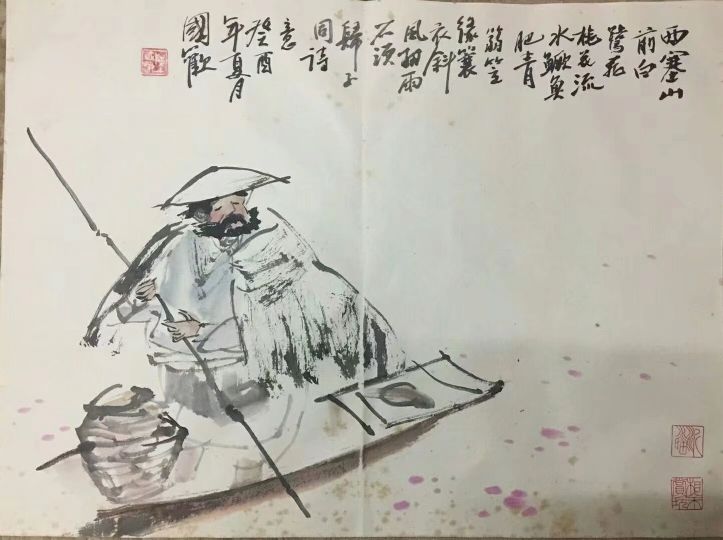 西塞山
前白
鷺飛
桃花流
水鱖魚
肥青
箬笠
緑簑
衣斜
風細雨
不須
歸子
同詩
意
癸酉
年夏月
國歡